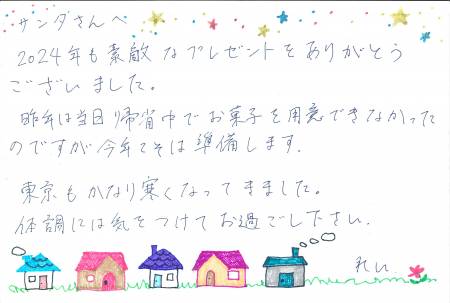 サンタさんへ
2024年も素敵なプレゼントをありがとう
ございました。
昨年は当日帰省中でお菓子を用意できなかった
のですが今年こそは準備します.
東京もかなり寒くなってきました。
体調には気をつけてお過ごし下さい.
れい